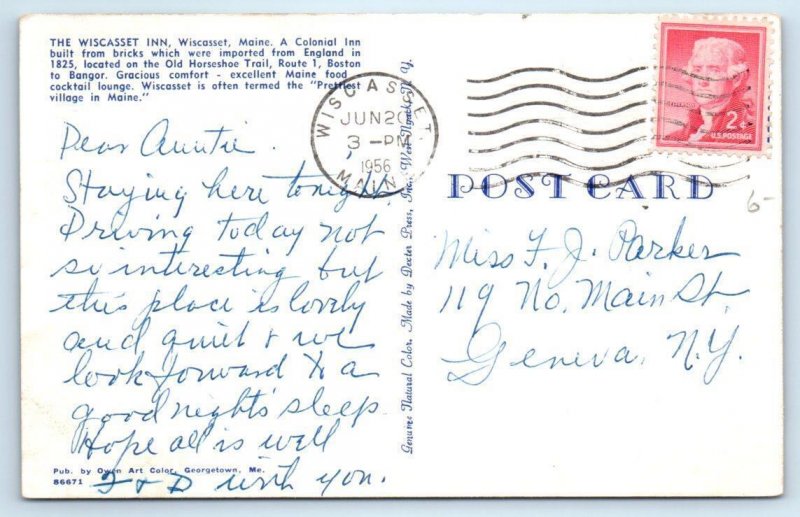 THE WISCASSET INN, Wiscasset, Maine. A Colonial Inn
built from bricks which were imported from England in
1825, located on the Old Horseshoe Trail, Route 1, Boston
to Bangor. Gracious comfort - excellent Maine food
cocktail lounge. Wiscasset is often termed the "Prettiest
village in Maine."
Dear Auntie.
Staying here tonight
Driving today not
so interesting but
this place is lovely
and quiet & we
look forward to a
good night's sleep
Hope all is well
with you.
J & D
Pub. by Owen Art Color, Georgetown, Me.
86671
Genuine Natural Color. Made by Dexter Press, Inc., West Nyack, N. Y.
WISCASSET
JUN 20
3 - PM
1956
MAINE
2¢
U.S. POSTAGE
POST CARD
6-
Miss F. J. Parker
119 No. Main St.
Geneva, N.Y.